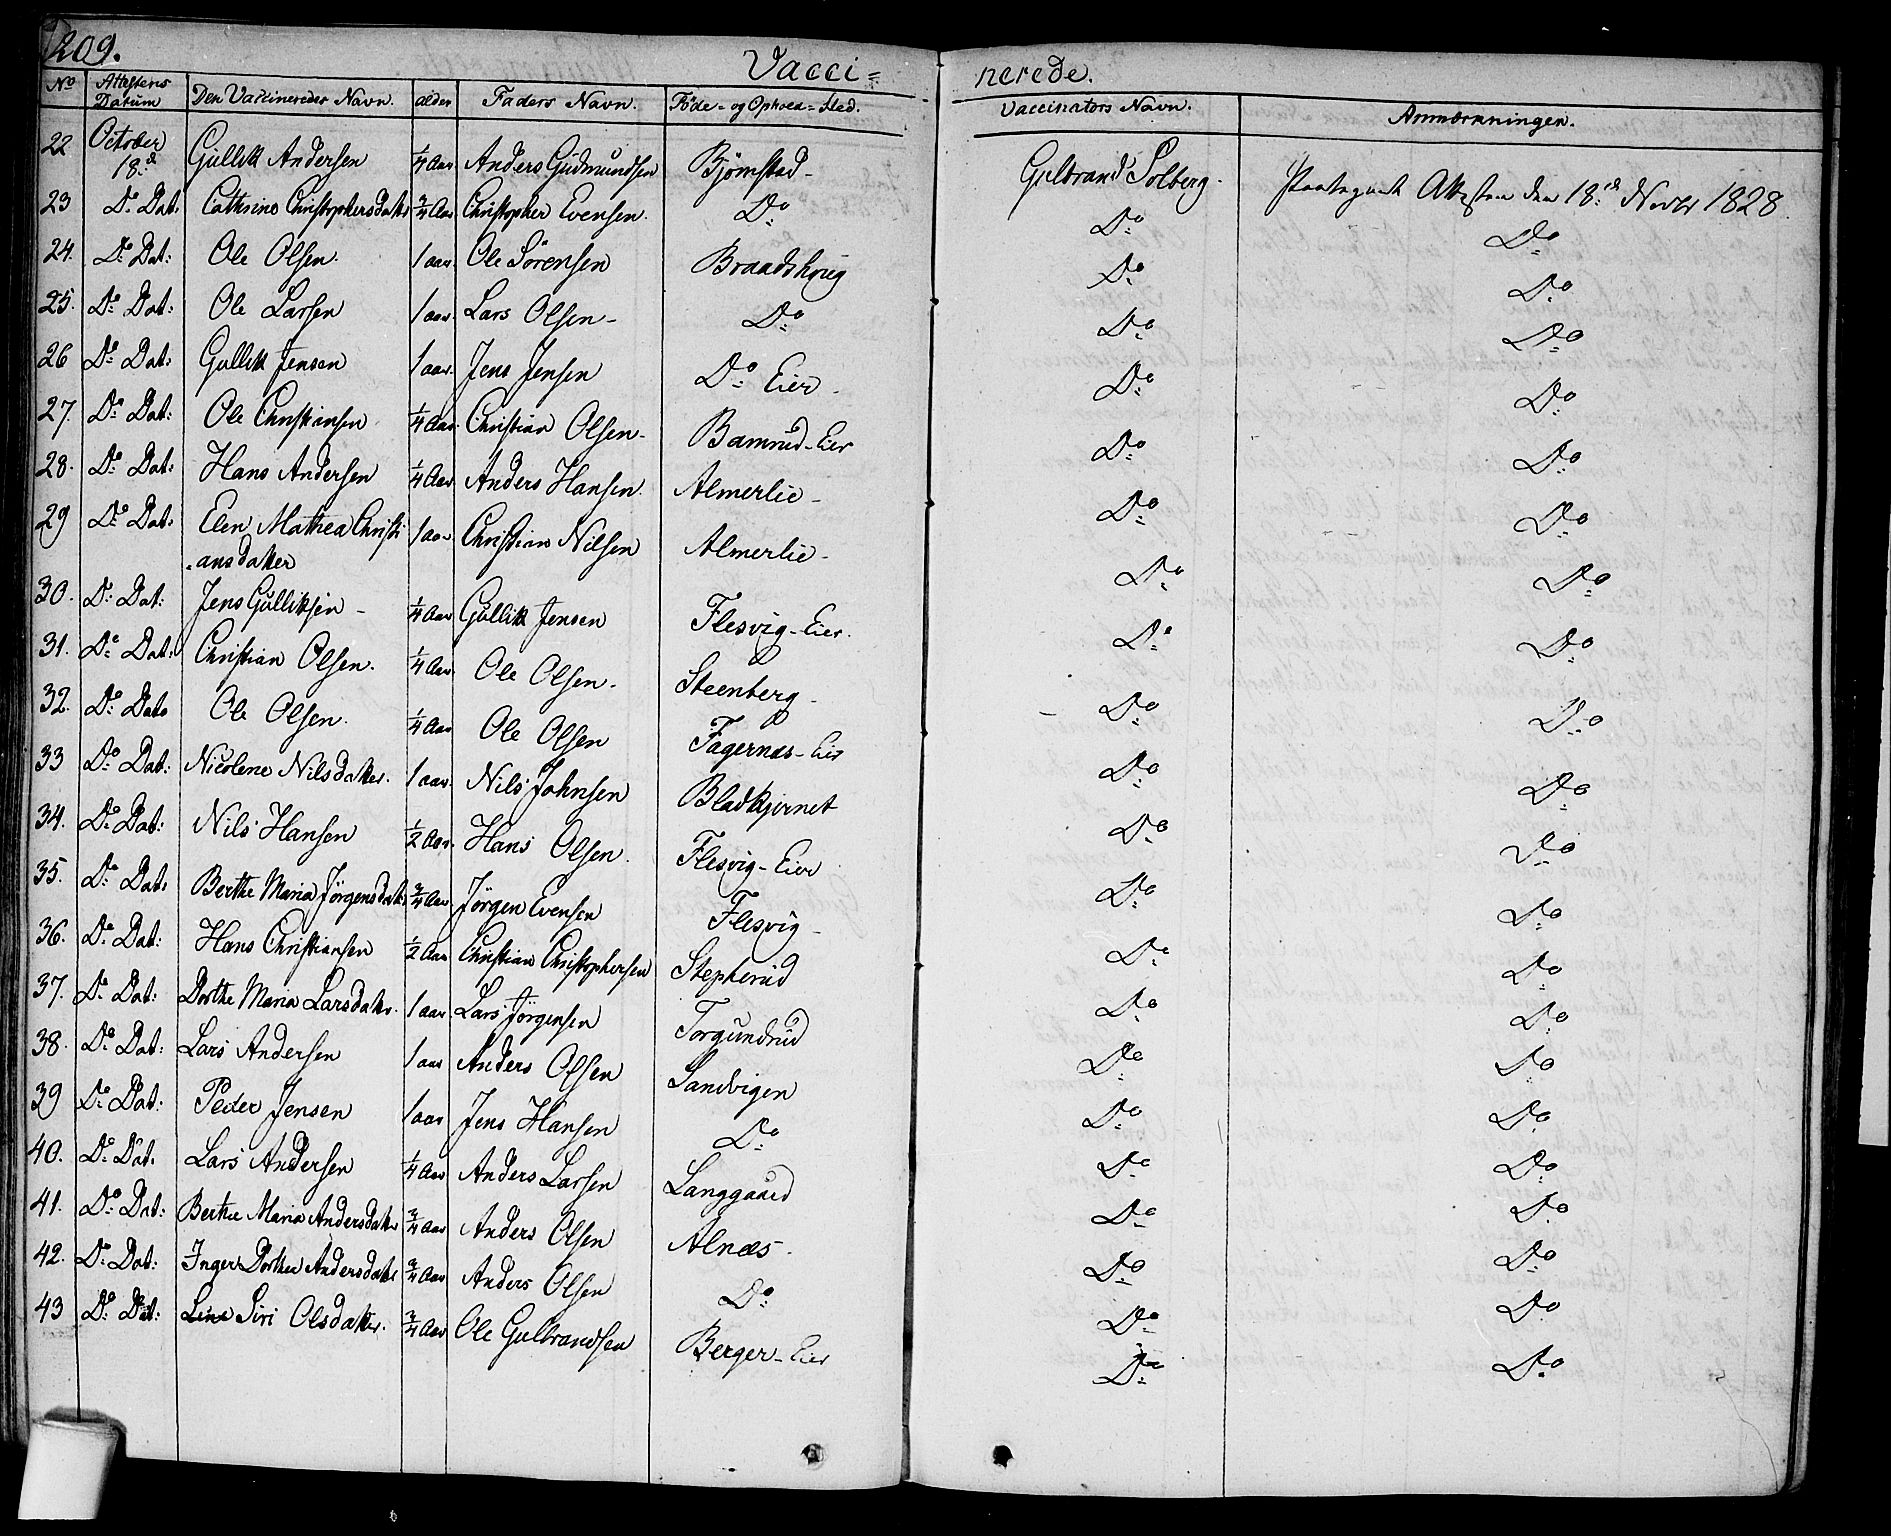 209.
Vacci= nerede.
No Attestens Datum Den Vaccineredes Navn. alder Faders Navn. Föde- og Ophold-Sted. Vaccinators Navn. Anmærkningen.
22 October 18.d Gullik Andersen 1/4 Aar Anders Gudmundsen Bjørnstad- Gulbrand Solberg. Attesten den 18.d Novbr 1828.
23 Do Dat: Cathrine Christophersdatter 3/4 Aar Christopher Evensen. Do Do Do
24. Do Dat: Ole Olsen. 1 aar. Ole Sörensen Braadshoug Do Do
25. Do Dat: Ole Larsen 1 aar. Lars Olsen- Do Do Do
26 Do Dat: Gullik Jensen 1 aar. Jens Jensen Do Eier- Do Do
27. Do Dat: Ole Christiansen 1/4 Aar. Christian Olsen- Bamrud-Eier Do Do
28. Do Dat: Hans Andersen 1/4 Aar Anders Hansen. Almerlie- Do Do
29 Do Dat: Elen Mathea Christi 1 aar Christian Nilsen Almerlie- Do Do
ansdatter
30. Do Dat: Jens Gulliksen- 1/4 Aar Gullik Jensen Flesvig-Eier. Do Do
31. Do Dat: Christian Olsen. 1/4 Aar Ole Olsen- Steenberg- Do Do
32. Do Dato Ole Olsen. 1/4 Aar Ole Olsen Fagernæs-Eier Do Do
33 Do Dat: Nicolene Nilsdatter. 1 aar. Nils Johnsen Bladkjernet Do Do
34. Do Dat: Nils Hansen 1/2 Aar. Hans Olsen. Flesvig-Eier Do Do
35. Do Dat: Berthe Maria Jørgensdatr 3/4 Aar Jørgen Evensen Flesvig- Do Do
36. Do Dat: Hans Christiansen 1/2 Aar Christian Christophersen Stepherud Do Do
37. Do Dat: Dorthe Maria Larsdatter. 1 aar Lars Jørgensen Torgundrud Do Do
38. Do Dat: Lars Andersen 1 aar Anders Olsen Sandvigen Do Do
39 Do Dat: Peder Jensen 1 aar Jens Hansen Do Do Do
40. Do Dat. Lars Andersen 1/4 Aar Anders Larsen Langgaard Do Do
41. Do Dat: Berthe Maria Andersdatr 3/4 Aar Anders Olsen Alnæs. Do Do
42. Do Dat: Inger Dorthea Andersdatr 3/4 Aar Anders Olsen Do Do Do
43 Do Dat: Line Siri Olsdatter. 3/4 Aar Ole Gulbrandsen Berger-Eier Do Do
Do